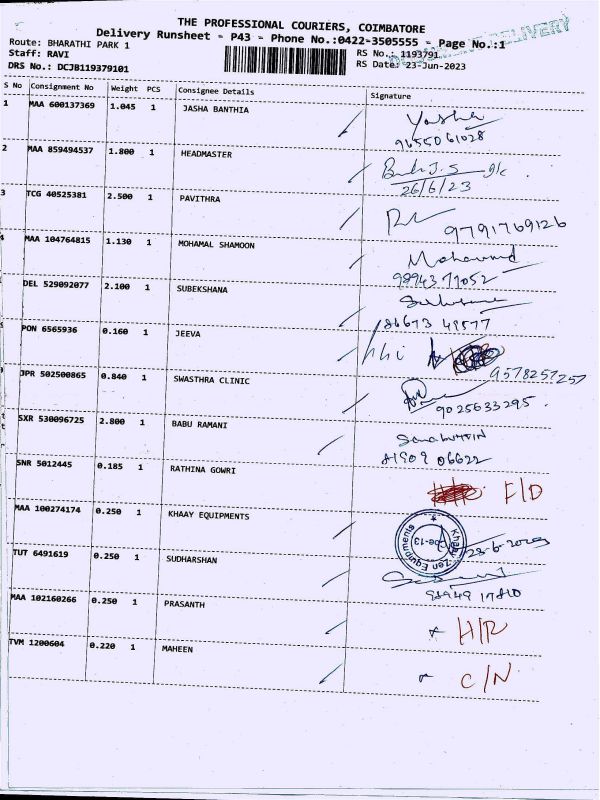 THE PROFESSIONAL COURIERS, COIMBATORE
Delivery Runsheet - P43 - Phone No.:0422-3505555 - Page No.:1
Route: BHARATHI PARK 1
RS No.: 1193791
Staff: RAVI
RS Date: 23-Jun-2023
DRS No.: DCJB119379101
S No Consignment No Weight PCS Consignee Details Signature
1 MAA 600137369 1.045 1 JASHA BANTHIA
Yasha
9655061028
2 MAA 859494537 1.800 1 HEADMASTER
26/6/23
3 TCG 40525381 2.500 1 PAVITHRA
9791769126
4 MAA 104764815 1.130 1 MOHAMAL SHAMOON
Mohammad
9894377052
DEL 529092077 2.100 1 SUBEKSHANA
86673 49577
PON 6565936 0.160 1 JEEVA
9578257257
JPR 502500865 0.840 1 SWASTHRA CLINIC
9025633295
SXR 530096725 2.800 1 BABU RAMANI
81909 06622
SNR 5012445 0.185 1 RATHINA GOWRI
F/D
MAA 100274174 0.250 1 KHAAY EQUIPMENTS
Cbe-13
TUT 6491619 0.250 1 SUDHARSHAN
98949 17810
MAA 102160266 0.250 1 PRASANTH
H/R
TVM 1200604 0.220 1 MAHEEN
C/N